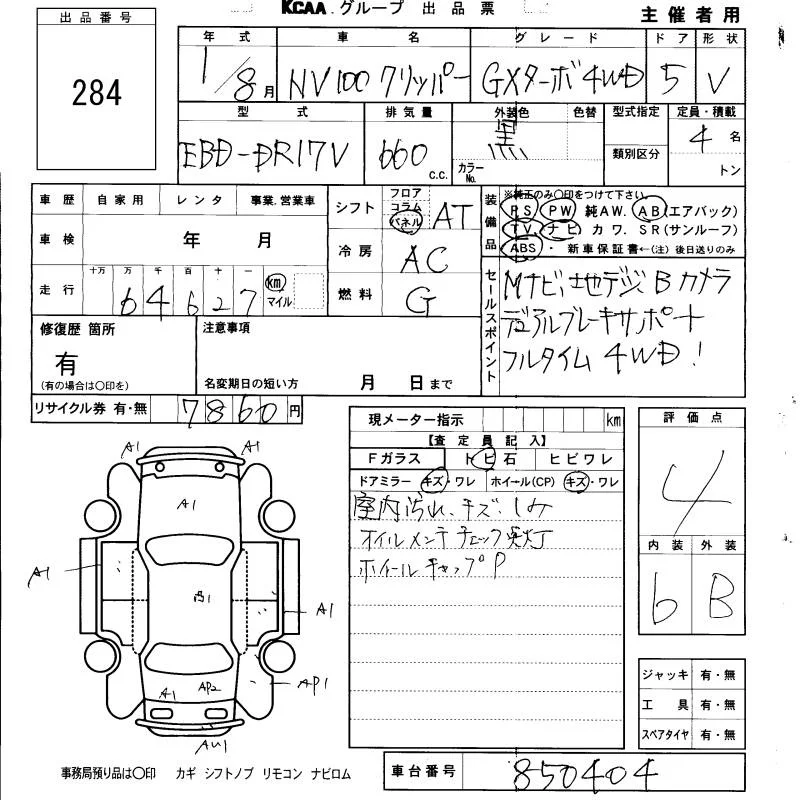 KCAA.グループ 出品票
主催者用
出品番号
284
年式 車名 グレード ドア 形状
1/8月 NV100クリッパー GXターボ4WD 5 V
型式 排気量 外装色 色替 型式指定 定員・積載
EBD-DR17V 660 c.c. 黒 カラーNo. 類別区分 4名
トン
車歴 自家用 レンタ 事業.営業車
車検 年 月
走行 十万 万 千 百 十 一 km マイル
6 4 6 2 7
シフト フロア コラム パネル AT
冷房 AC
燃料 G
装備品 ※純正のみ○印をつけて下さい。
PS PW 純AW. AB(エアバック)
TV. ナビ カワ. SR(サンルーフ)
ABS・ 新車保証書←(注)後日送りのみ
セールスポイント
Mナビ、地デジ、Bカメラ
デュアルブレーキサポート
フルタイム 4WD!
修復歴 箇所
有
(有の場合は○印を)
注意事項
名変期日の短い方 月 日まで
リサイクル券 有・無 7860円
現メーター指示 km
【査定員記入】
Fガラス トビ石 ヒビワレ
ドアミラー キズ・ワレ ホイール(CP) キズ・ワレ
室内汚れ、キズ、しみ
オイルメンテチェック灯
ホイールキャップP
評価点
4
内装 外装
6 B
ジャッキ 有・無
工具 有・無
スペアタイヤ 有・無
A1 A1
A1
A1
A1
A1 AP2 AP1
AU1
事務局預り品は○印 カギ シフトノブ リモコン ナビロム
車台番号 850404